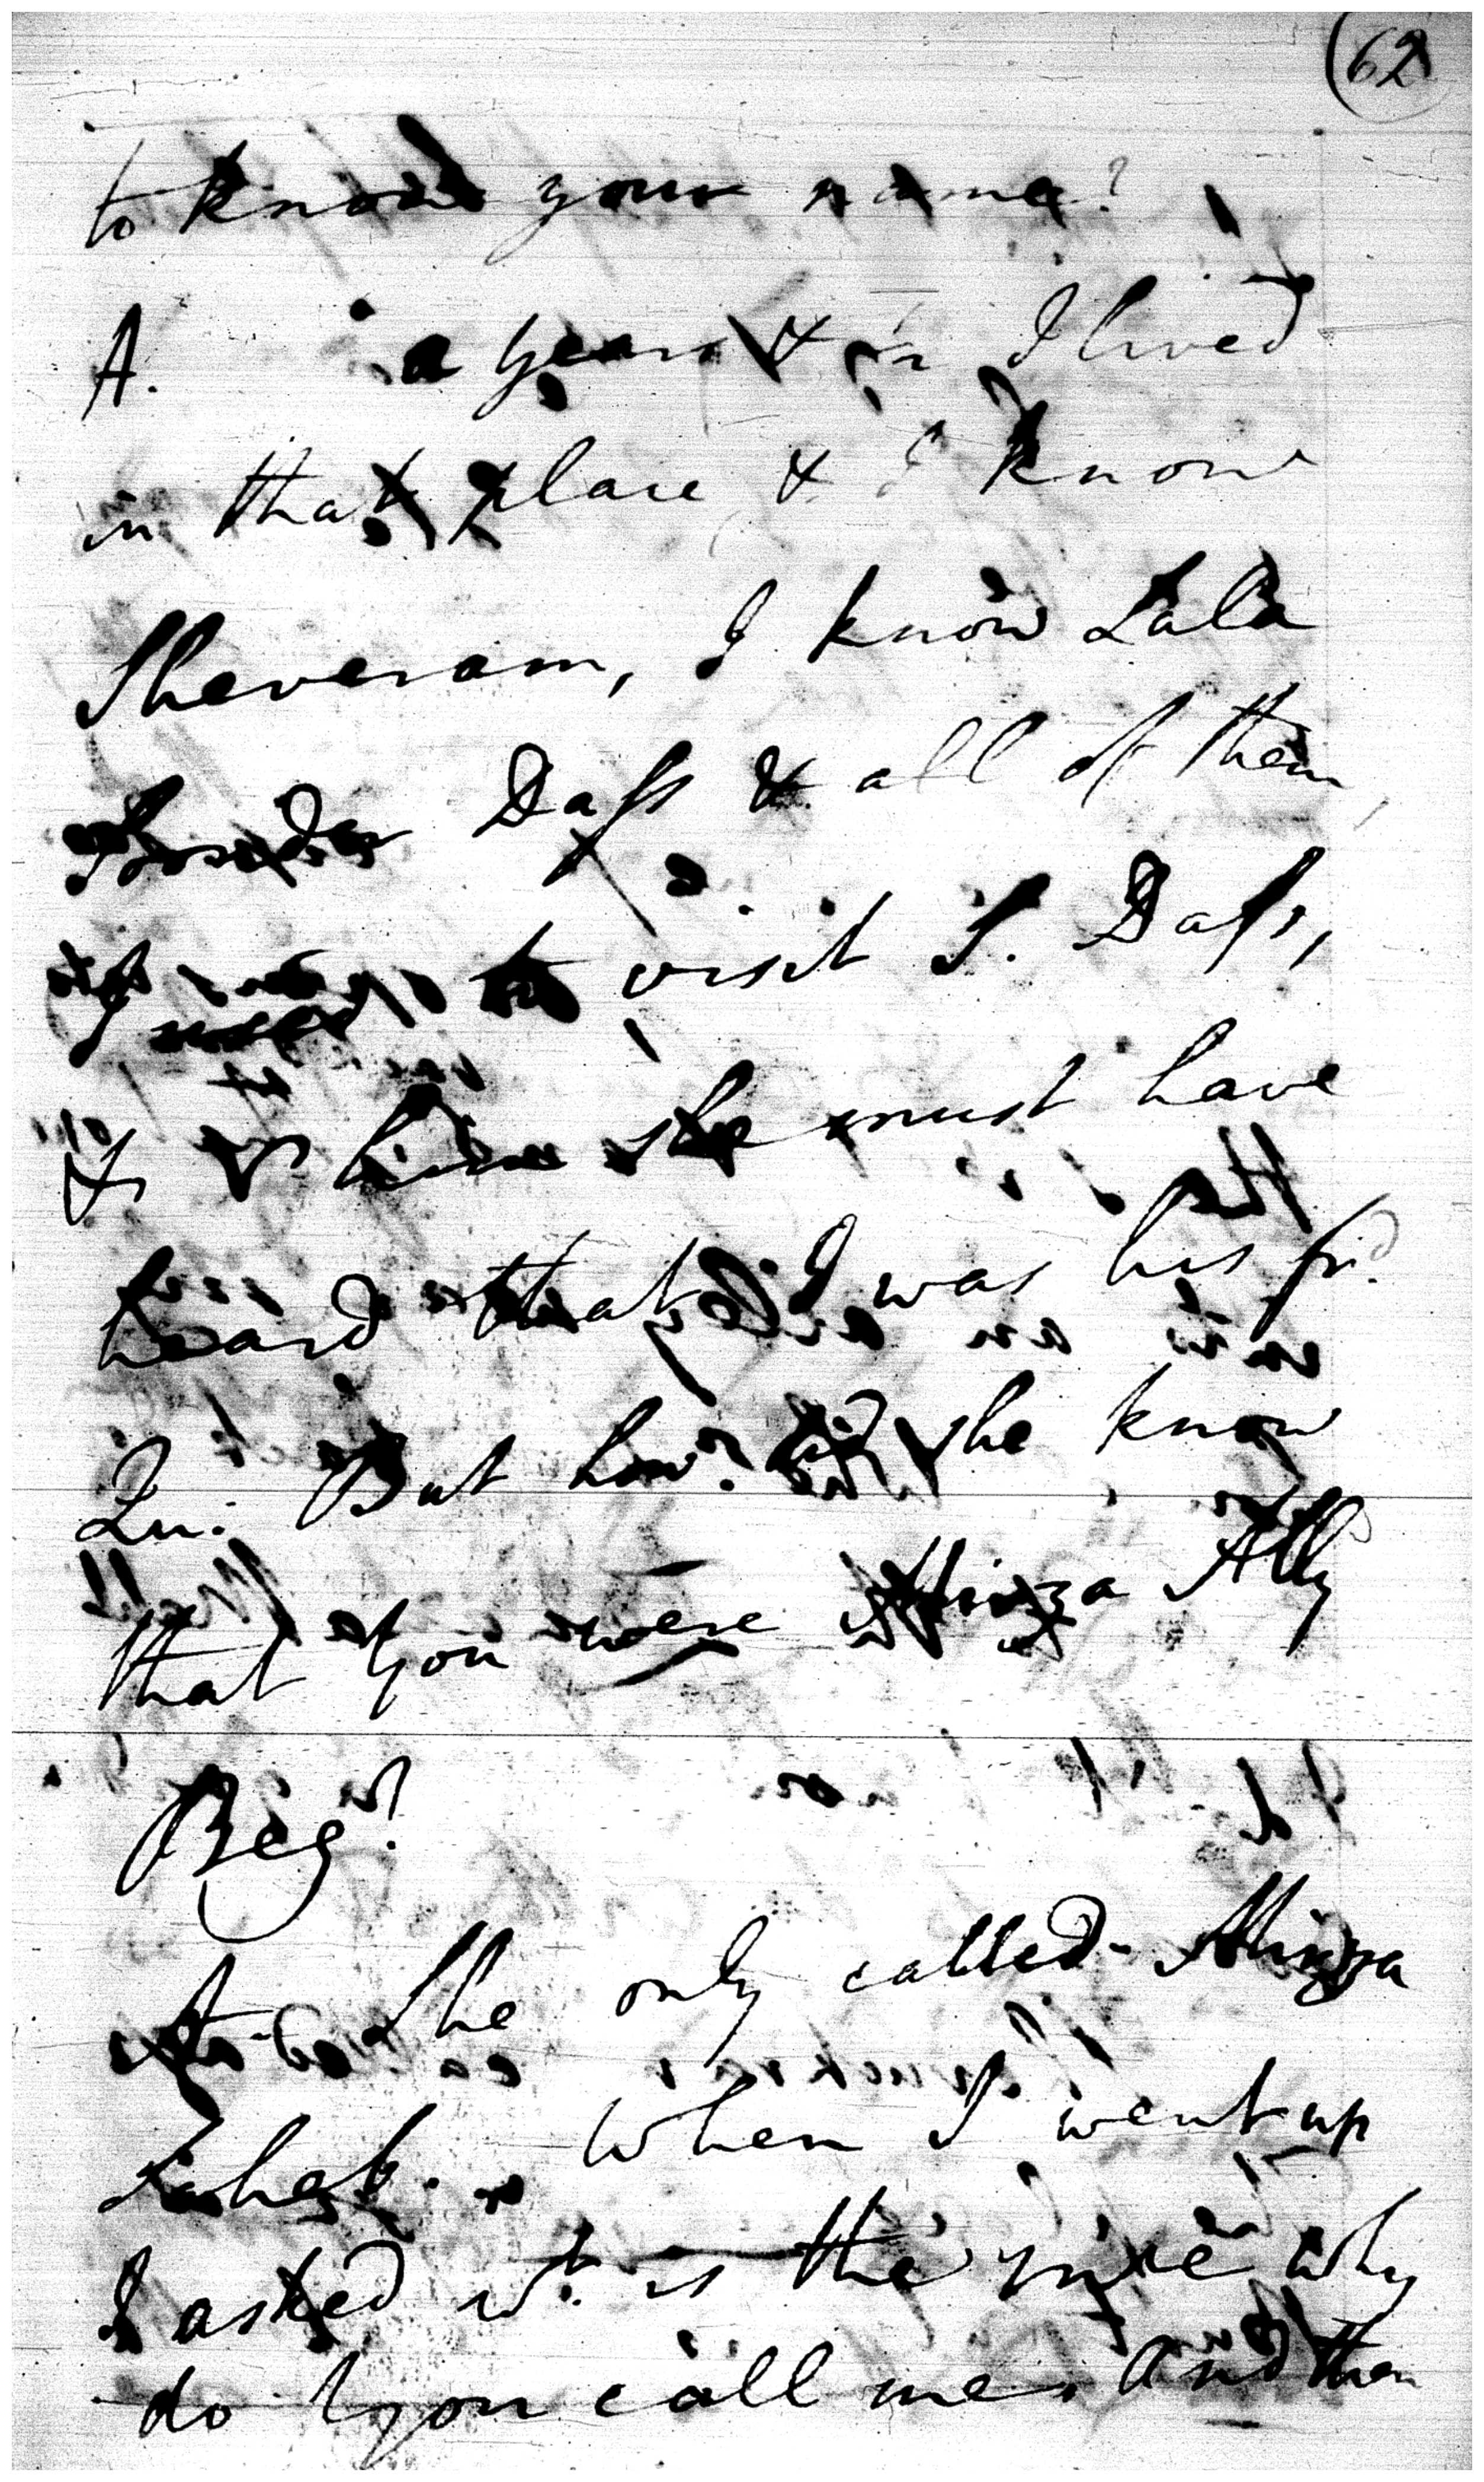 62
to know your name?
A. a year & I lived
in that place & I know
Sheveram, I know Lala
Dass & all of them,
I used to visit S. Dass,
& him she must have
heard that I was his frd.
Qu. But how did she know
that you were Mirza Ally
Beg?
A. She only called Mirza
Saheb. When I went up
I asked wt. is the why
do you call me, and then